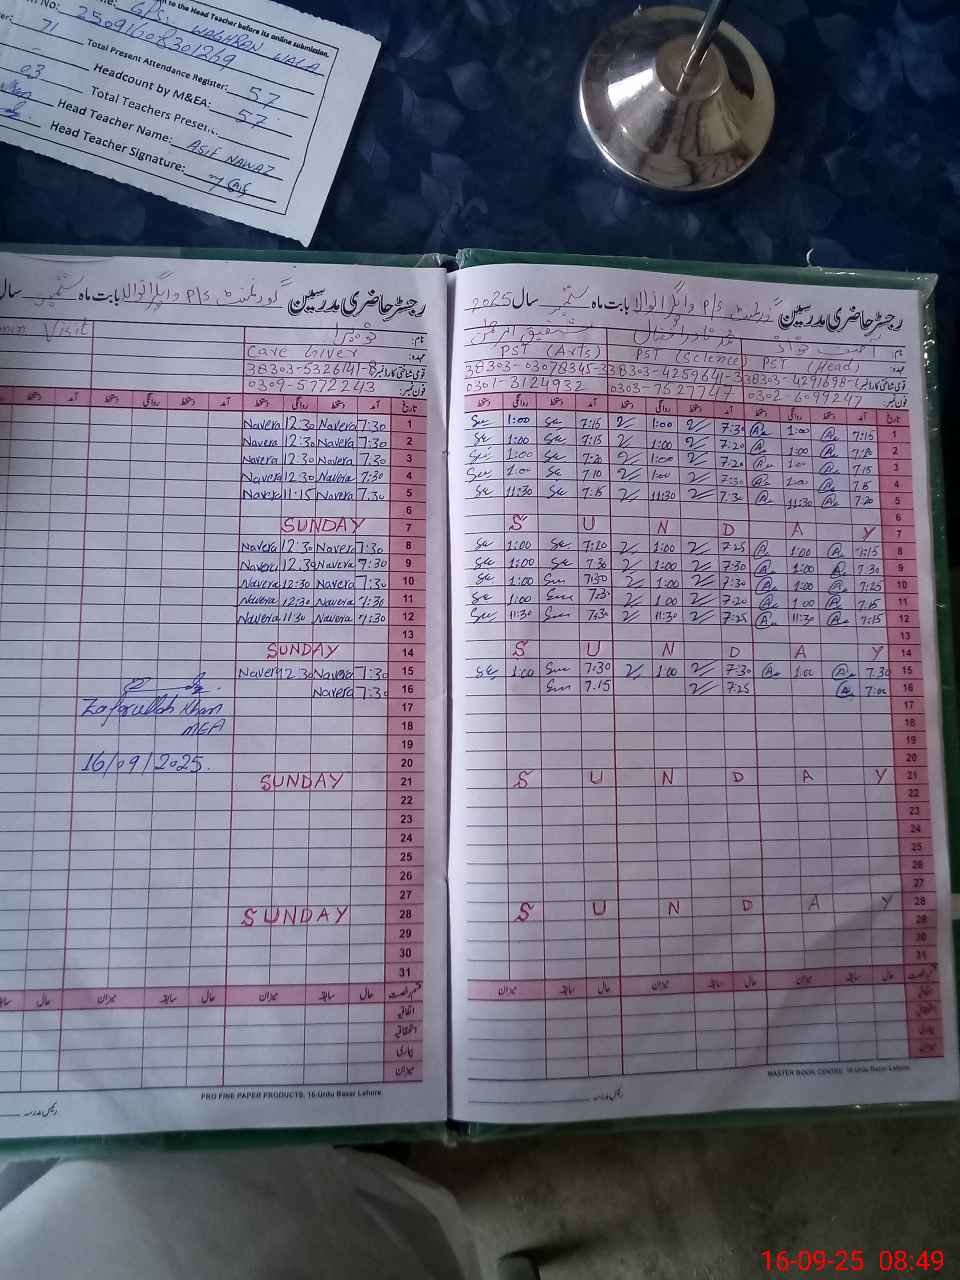 to the Head Teacher before its online submission.
GPS. WAGHRAN WALA
No: 25091608301269
71 Total Present Attendance Register: 57
Headcount by M&EA: 57
03 Total Teachers Present:
Head Teacher Name: ASIF NAWAZ
Head Teacher Signature:
رجسٹر حاضری مدرسین گورنمنٹ P/S بابت ماہ ستمبر سال
Visit
نام:
عہدہ: Care Giver
قومی شناختی کارڈ نمبر 38303-5326141-8
فون نمبر: 0309-5772243
تاریخ آمد دستخط روانگی دستخط آمد دستخط روانگی دستخط آمد
1 7:30 Navera 12:30 Navera
2 7:30 Navera 12:30 Navera
3 7:30 Navera 12:30 Navera
4 7:30 Navera 12:30 Navera
5 7:30 Navera 11:15 Navera
6
7 SUNDAY
8 7:30 Navera 12:30 Navera
9 7:30 Navera 12:30 Navera
10 7:30 Navera 12:30 Navera
11 7:30 Navera 12:30 Navera
12 7:30 Navera 11:30 Navera
13
14 SUNDAY
15 7:30 Navera 12:30 Navera
16 7:30 Navera
17 Zafarullah Khan
18 MEA
19
20 16/09/2025.
21 SUNDAY
22
23
24
25
26
27
28 SUNDAY
29
30
31
حال سابقہ میزان حال سابقہ میزان حال سابقہ
اتفاقیہ
بیماری
میزان
PRO FINE PAPER PRODUCTS, 16-Urdu Bazar Lahore.
رئیس مدرسہ
رجسٹر حاضری مدرسین گورنمنٹ P/S بابت ماہ ستمبر سال 2025
نام: آصف نواز
عہدہ: PST (Head) PST (Science) PST (Arts)
قومی شناختی کارڈ نمبر 38303-4291698-1 38303-4259641-3 38303-03078345-3
فون نمبر: 0302-6099247 0303-7527747 0301-3124932
تاریخ آمد دستخط روانگی دستخط آمد دستخط روانگی دستخط آمد دستخط روانگی دستخط
1 7:15 1:00 7:30 1:00 7:15 1:00
2 7:20 1:00 7:20 1:00 7:15 1:00
3 7:15 1:00 7:20 1:00 7:20 1:00
4 7:15 1:00 7:30 1:00 7:10 1:00
5 7:20 11:30 7:30 11:30 7:15 11:30
6
7 S U N D A Y
8 7:15 1:00 7:25 1:00 7:20 1:00
9 7:30 1:00 7:30 1:00 7:30 1:00
10 7:25 1:00 7:30 1:00 7:30 1:00
11 7:15 1:00 7:20 1:00 7:30 1:00
12 7:15 11:30 7:25 11:30 7:30 11:30
13
14 S U N D A Y
15 7:30 1:00 7:30 1:00 7:30 1:00
16 7:00 7:25 7:15
17
18
19
20
21 S U N D A Y
22
23
24
25
26
27
28 S U N D A Y
29
30
31
حال سابقہ میزان حال سابقہ میزان حال سابقہ میزان
اتفاقیہ
بیماری
میزان
MASTER BOOK CENTRE, 16-Urdu Bazar Lahore.
رئیس مدرسہ
16-09-25 08:49